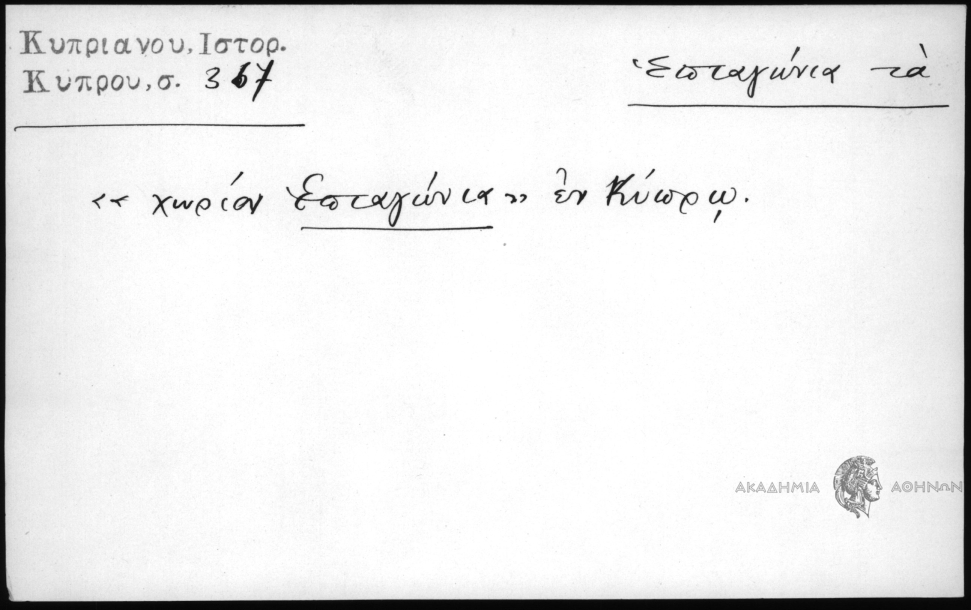 Κυπριανου, Ιστορ.
Κυπρου, σ. 367
Ἑπταγώνια τὰ
«χωρίον Ἑπταγώνια» ἐν Κύπρῳ.
ΑΚΑΔΗΜΙΑ ΑΘΗΝΩΝ